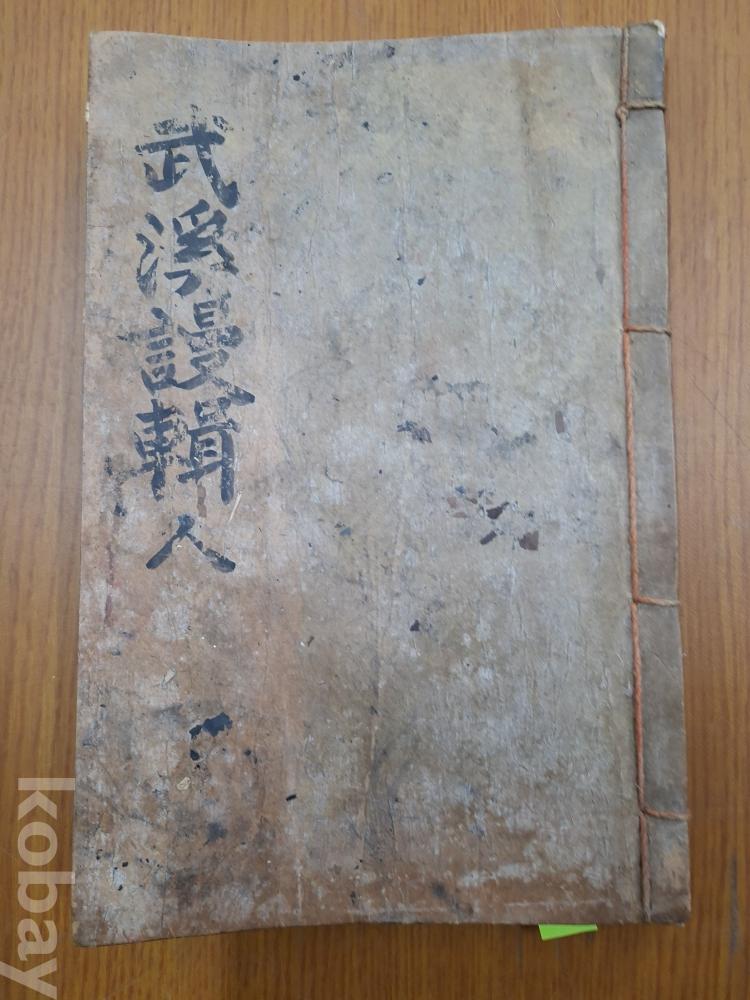 武溪謾輯 人
kobay